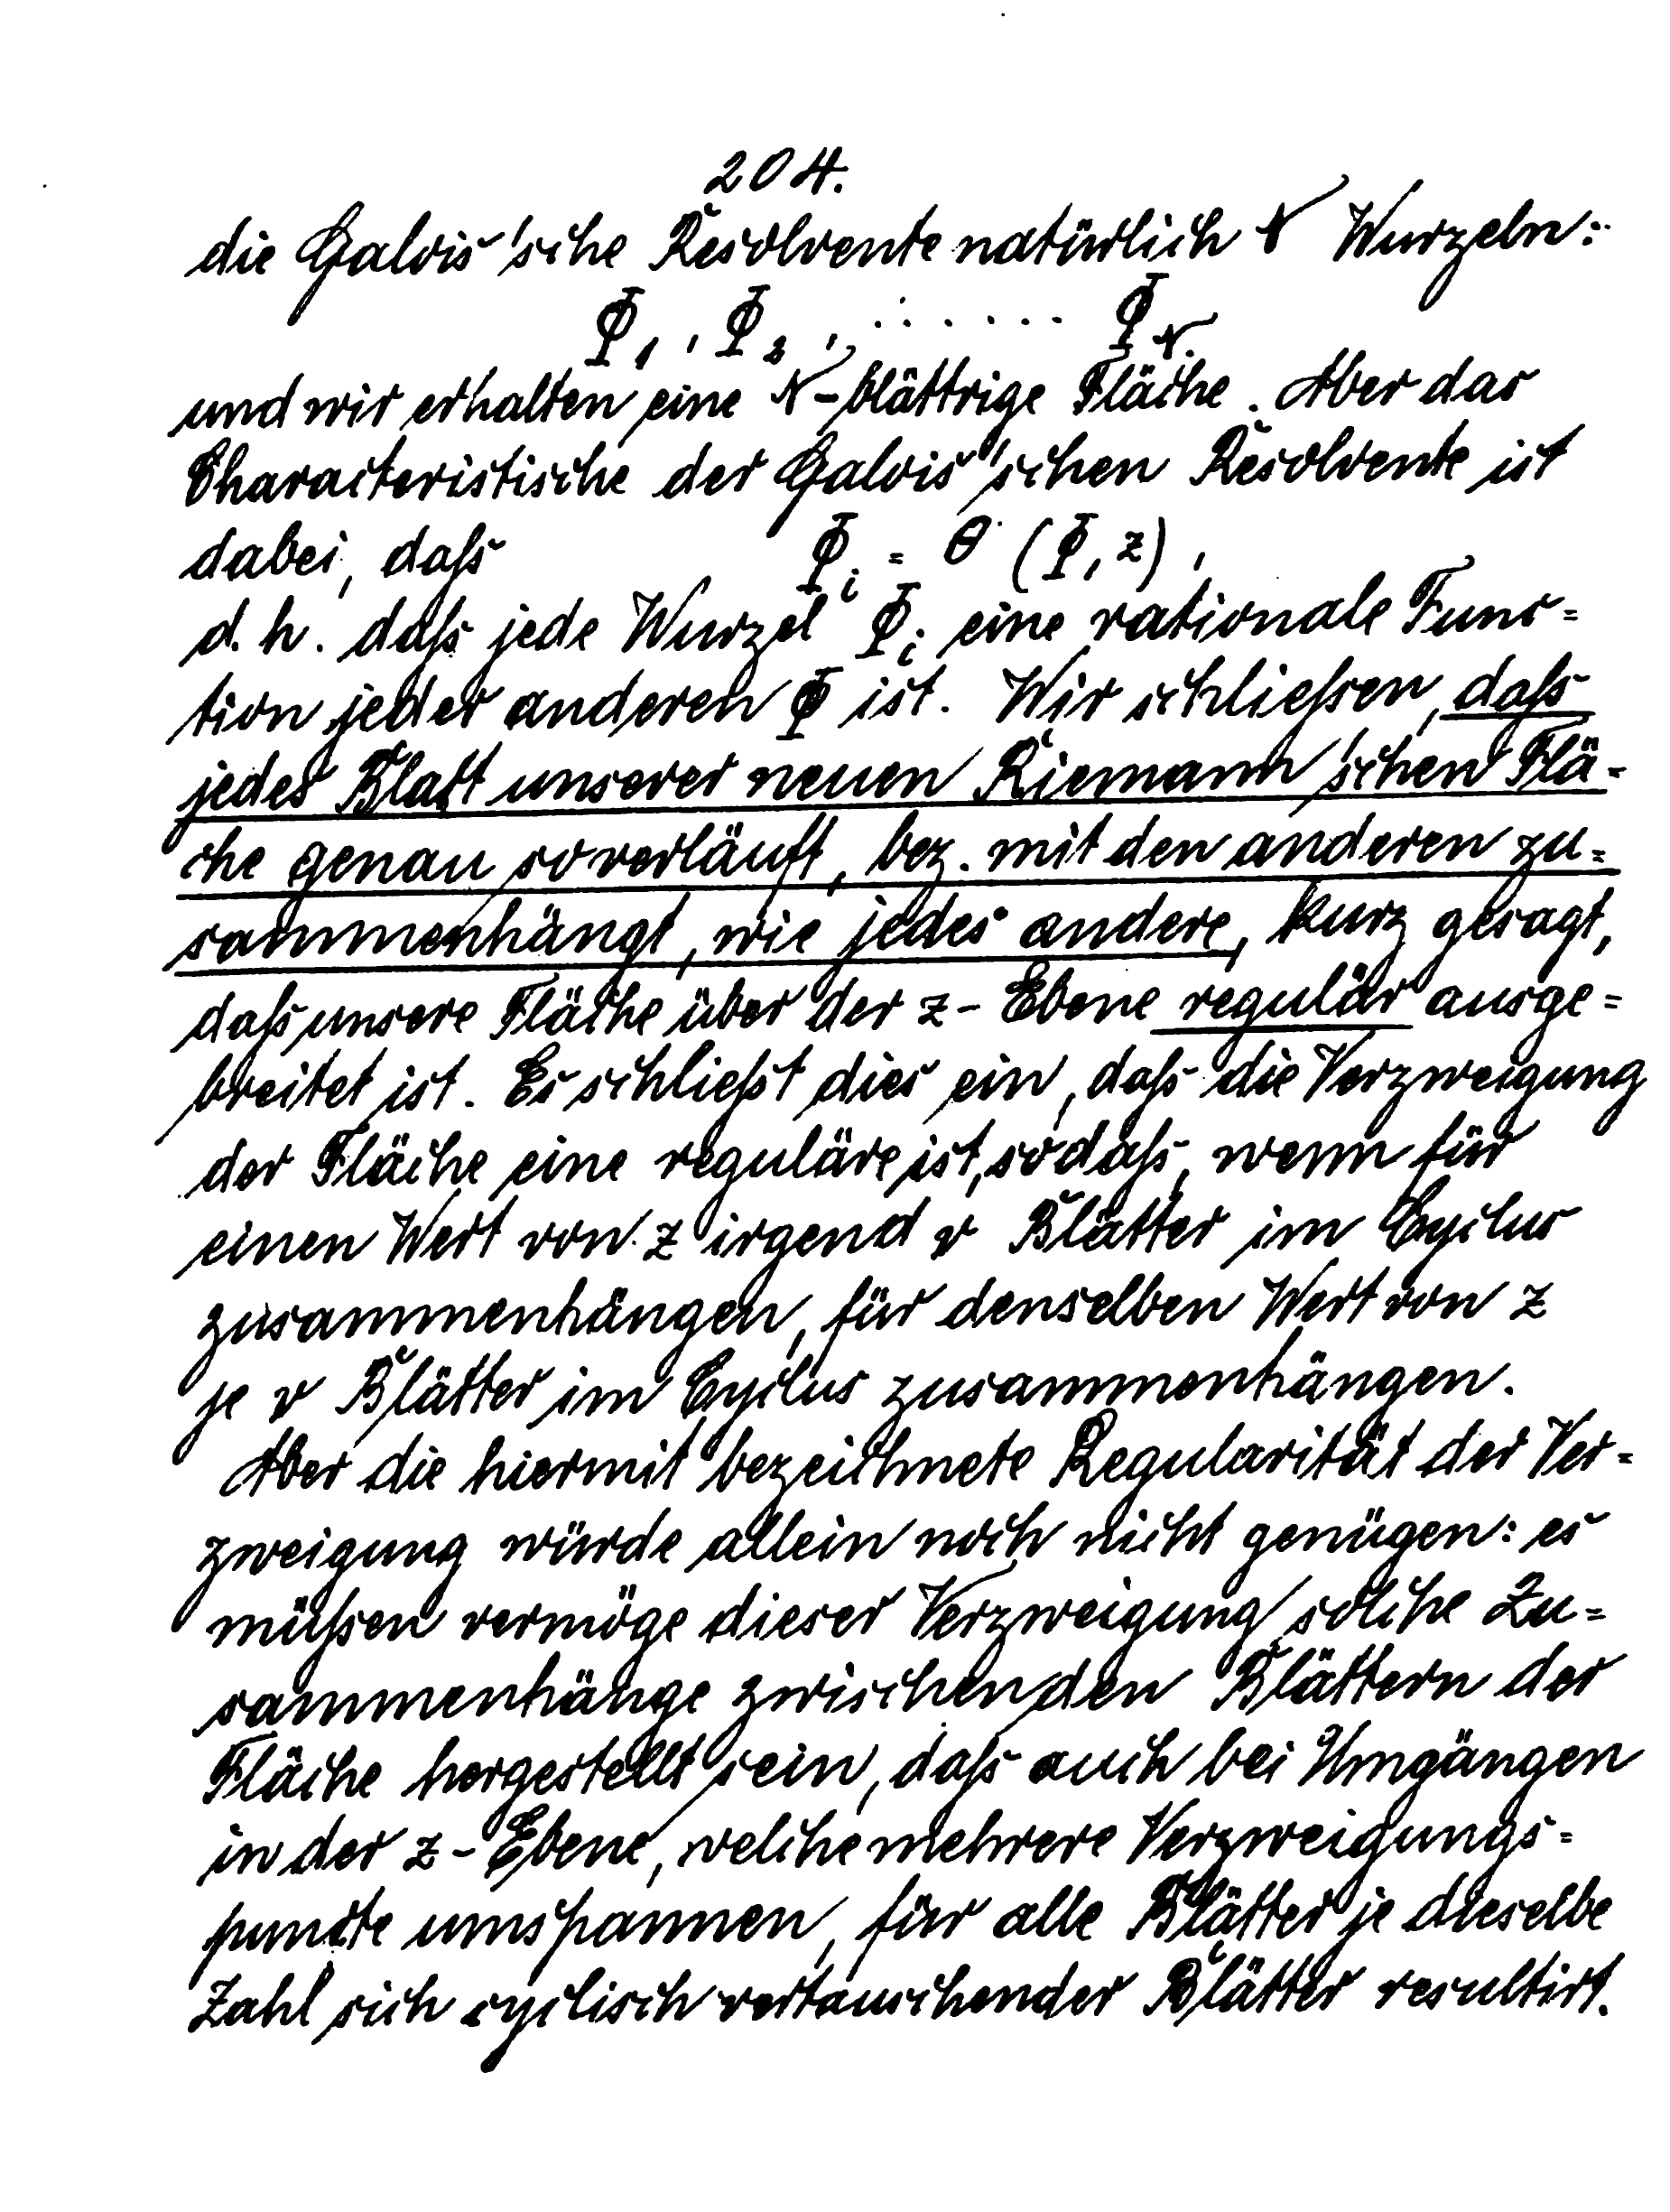 204.
die Galois'sche Resolvente natürlich N Wurzeln:
Φ₁, Φ₂, ....... Φ_N.
und wir erhalten eine N-blättrige Fläche. Aber das
Characteristische der Galois'schen Resolvente ist
dabei, daß Φᵢ = Θ (Φ, z),
d. h. daß jede Wurzel Φᵢ eine rationale Func=
tion jeder anderen Φ ist. Wir schließen, daß
jedes Blatt unserer neuen Riemann'schen Flä-
che genau so verläuft, bez. mit den anderen zu=
sammenhängt, wie jedes andere, kurz gesagt,
daß unsere Fläche über der z-Ebene regulär ausge=
breitet ist. Es schließt dies ein, daß die Verzweigung
der Fläche eine reguläre ist, sodaß, wenn für
einen Wert von z irgend ν Blätter im Cyclus
zusammenhängen, für denselben Wert von z
je ν Blätter im Cyclus zusammenhängen.
Aber die hiermit bezeichnete Regularität der Ver=
zweigung würde allein noch nicht genügen: es
müßen vermöge dieser Verzweigung solche Zu=
sammenhänge zwischen den Blättern der
Fläche hergestellt sein, daß auch bei Umgängen
in der z-Ebene, welche mehrere Verzweigungs=
puncte umspannen, für alle Blätter je dieselbe
Zahl sich cyclisch vertauschender Blätter resultirt.